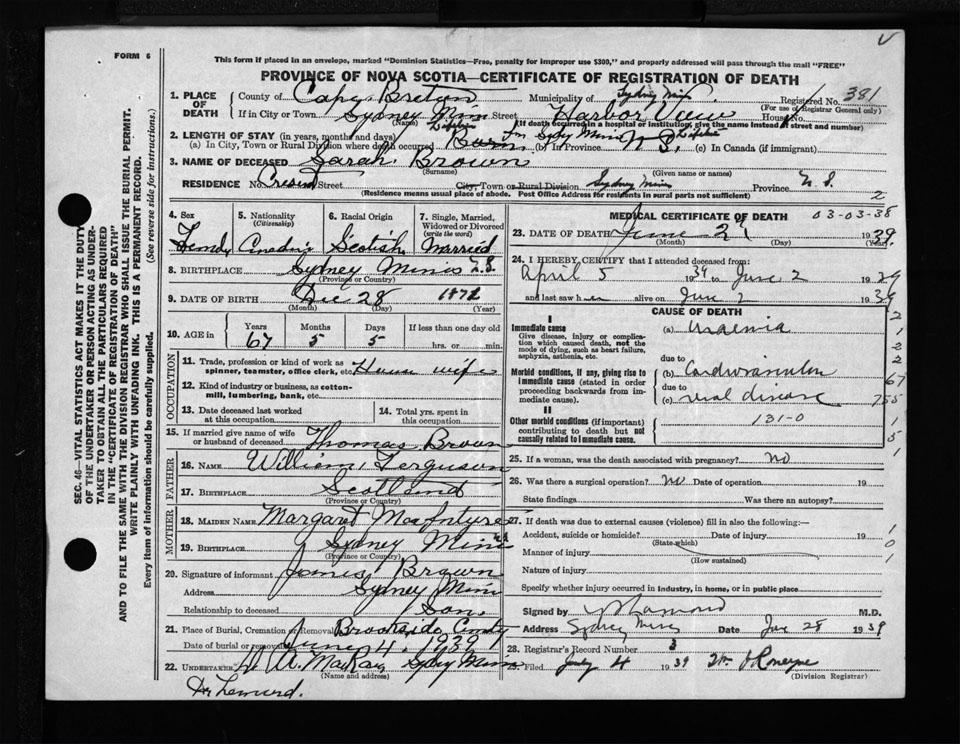 FORM 6
This form if placed in an envelope, marked "Dominion Statistics—Free, penalty for improper use $300," and properly addressed will pass through the mail "FREE"
PROVINCE OF NOVA SCOTIA—CERTIFICATE OF REGISTRATION OF DEATH
1. PLACE OF DEATH
County of Cape Breton Municipality of Sydney Mines Registered No. 381
(For use of Registrar General only)
If in City or Town Sydney Mines Street Harbor View House No.
(Name) (If death occurred in a hospital or institution, give the name instead of street and number)
2. LENGTH OF STAY (in years, months and days)
(a) In City, Town or Rural Division where death occurred Lifetime Born in Sydney Mines (b) In Province N S. Lifetime (c) In Canada (if immigrant)
3. NAME OF DECEASED Sarah Brown
(Surname) (Given name or names)
RESIDENCE No. Street City, Town or Rural Division Sydney Mines Province N. S.
(Residence means usual place of abode. Post Office Address for residents in rural parts not sufficient)
2
4. Sex
5. Nationality (Citizenship)
6. Racial Origin
7. Single, Married, Widowed or Divorced (write the word)
Female Canadian Scotish Married
8. BIRTHPLACE Sydney Mines N.S.
(Province or Country)
9. DATE OF BIRTH Dec 28 1871
(Month) (Day) (Year)
10. AGE in Years Months Days If less than one day old
67 5 5 hrs. or min.
OCCUPATION
11. Trade, profession or kind of work as spinner, teamster, office clerk, etc. House wife
12. Kind of industry or business, as cotton-mill, lumbering, bank, etc.
13. Date deceased last worked at this occupation
14. Total yrs. spent in this occupation
15. If married give name of wife or husband of deceased Thomas Brown
FATHER
16. NAME William Ferguson
17. BIRTHPLACE Scotland
(Province or Country)
MOTHER
18. MAIDEN NAME Margaret MacIntyre
19. BIRTHPLACE Sydney Mines N.S.
(Province or Country)
20. Signature of informant James Brown
Address Sydney Mines
Relationship to deceased Son.
21. Place of Burial, Cremation or Removal Brookside Cemty
Date of burial or removal June 4, 1939
22. UNDERTAKER MacKay Sydney Mines
(Name and address)
MEDICAL CERTIFICATE OF DEATH 03-03-38
23. DATE OF DEATH June 2, 1939
(Month) (Day) (Year)
24. I HEREBY CERTIFY that I attended deceased from:
April 5 1939 to June 2 1939
and last saw her alive on June 2 1939
CAUSE OF DEATH
I
Immediate cause
Give disease, injury or complication which caused death, not the mode of dying, such as heart failure, asphyxia, asthenia, etc.
(a) Uraemia
due to
Morbid conditions, if any, giving rise to immediate cause (stated in order proceeding backwards from immediate cause).
(b) Cardiovascular
due to
(c) renal disease
II
Other morbid conditions (if important) contributing to death but not causally related to immediate cause.
131-0
2
1
2
2
67
755
1
5
25. If a woman, was the death associated with pregnancy? no
26. Was there a surgical operation? no Date of operation 19
State findings Was there an autopsy?
27. If death was due to external causes (violence) fill in also the following:—
Accident, suicide or homicide? Date of injury 19
(State which)
Manner of injury
(How sustained)
Nature of injury
1
0
1
Specify whether injury occurred in industry, in home, or in public place
Signed by M.D.
Address Sydney Mines Date 28 1939
28. Registrar's Record Number 3
Filed July 4 1939
(Division Registrar)
SEC. 46—VITAL STATISTICS ACT MAKES IT THE DUTY OF THE UNDERTAKER OR PERSON ACTING AS UNDERTAKER TO OBTAIN ALL THE PARTICULARS REQUIRED IN THE "CERTIFICATE OF REGISTRATION OF DEATH" AND TO FILE THE SAME WITH THE DIVISION REGISTRAR WHO SHALL ISSUE THE BURIAL PERMIT.
WRITE PLAINLY WITH UNFADING INK. THIS IS A PERMANENT RECORD.
Every item of information should be carefully supplied. (See reverse side for instructions.)